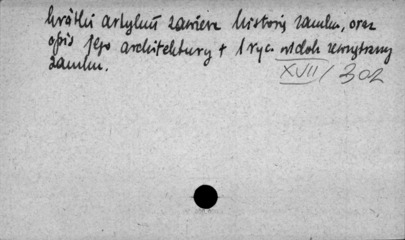 krótki artykuł zawiera historię zamku, oraz
opis jego architektury + 1 ryc. widok zewnętrzny
zamku.
XVII/302